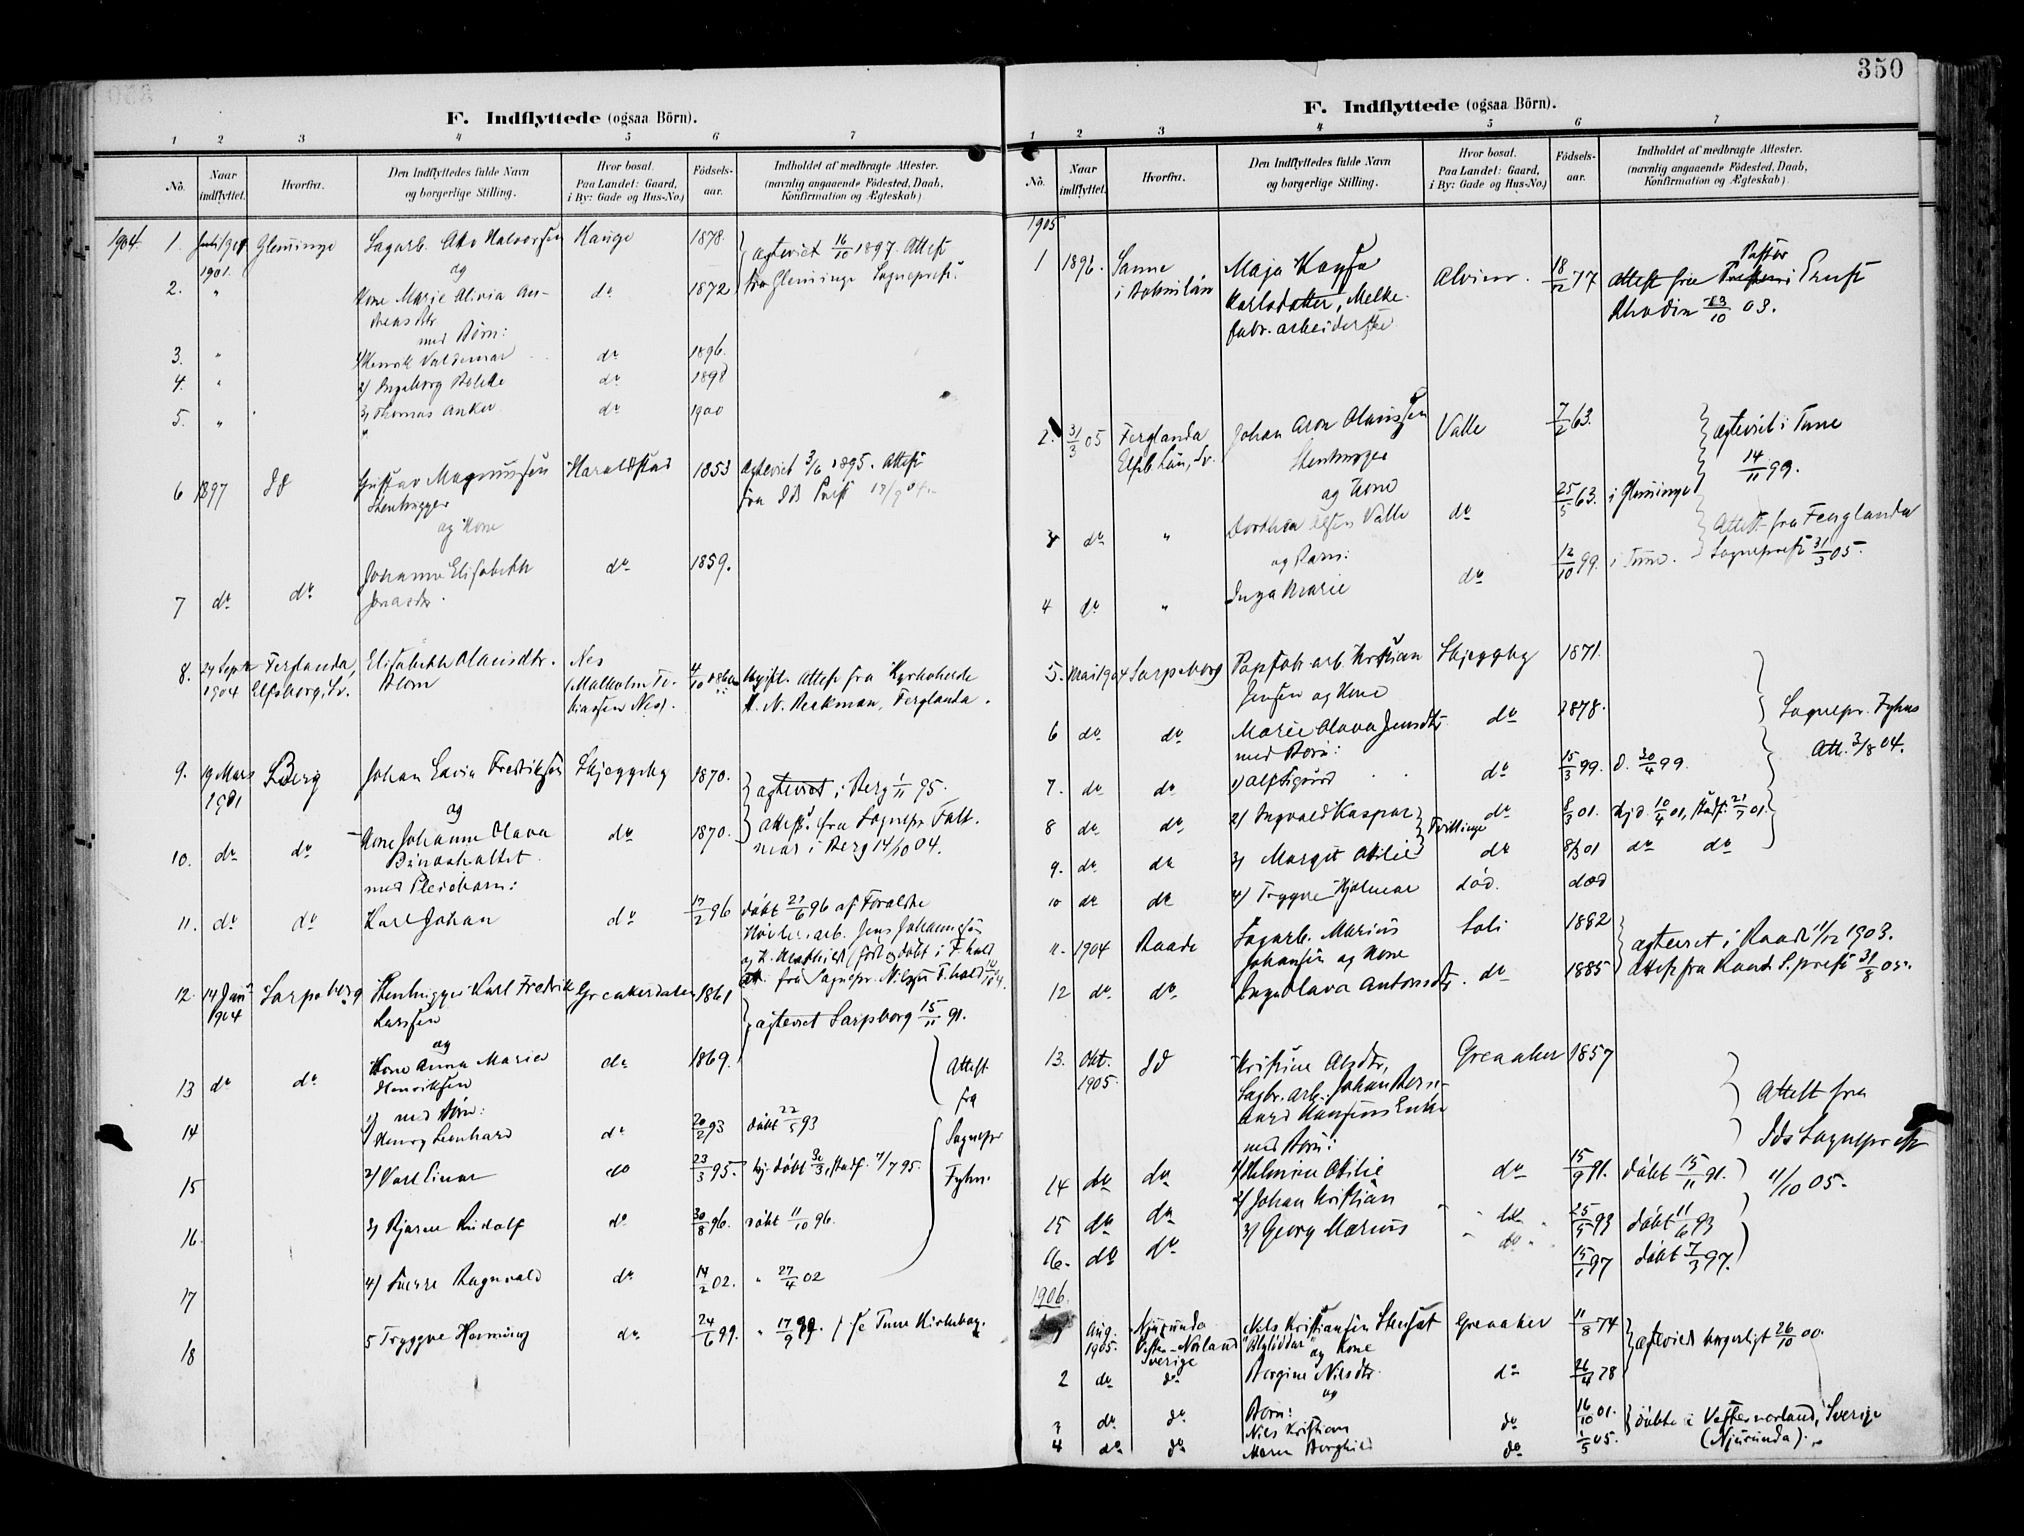 F. Indflyttede (ogsaa Börn).
1 2 3 4 5 6 7
Nô.
Naar indflyttet.
Hvorfra.
Den Indflyttedes fulde Navn og borgerlige Stilling.
Hvor bosat.
Paa Landet: Gaard, i By: Gade og Hus-No.)
Födsels-aar.
Indholdet af medbragte Attester.
(navnlig angaaende Födested, Daab, Konfirmation og Ægteskab)
1904. 1. Glemminge Sagarb. Halvorsen Hauge 1878. ægteviet 16/10 1897. Attest
1901. og fra Glemminge Sognepræst.
2. " Kone Marie Olivia An- do 1872
dreas Dtr.
med Børn:
3. " 1) Henrik Valdemar do 1896.
4. " 2) Ingeborg do 1898
5. " 3) Thomas Anker do 1900
6 1897 Id Gustav Magnussen Haraldstad 1853 Ægteviet 1895. Attest
Stenhugger fra Ids Præst
og Kone
7 do do Johanne Elisabeth do 1859.
Jonasdtr.
8. 24 Septr Ferglanda, Elisabeth Olausdtr. Nes ugift. Attest fra Kyrkoherde
1904 Elfsborg, Sv. Blom Ferglanda.
9. 19 Mars Berg Johan Fredriksen Skjeggeby 1870. ægteviet i Berg 1/11 95.
1901 og Attest fra Sognepr. Falt-
10. do do Kone Johanne Olava do 1870. mar i Berg 14/10 04.
med Pleiebarn:
11. do do Karl Johan do 17/2 96 døbt 21/6 96 af Forældre
arb. Jens Johannesen
fra Sognepr.
12. 14 Jan. Sarpsborg Stenhugger Karl Fredrik Greakerdalen 1861
1904 Larssen ægteviet Sarpsborg 15/11 91.
og
13 do do Kone Anna Marie do 1869. Attest
Henriksen fra
med Børn:
14 1) Henry Leonhard do 20/2 93 døbt 22/5 93 Sognepr
15 2) Karl Einar do 23/3 95. hj. døbt 30/3, stadf. 7/7 95. Fyhn.
16. 3) Bjarne Rudolf do 30/8 96. døbt 11/10 96.
17 4) Sverre Ragnvald do 14/2 02. " 27/4 02
18 5 Tryggve Henning do 24/6 99. " 17/9 99. se Tune Kirkebog.
350
F. Indflyttede (ogsaa Börn).
1 2 3 4 5 6 7
Nô.
Naar indflyttet.
Hvorfra.
Den Indflyttedes fulde Navn og borgerlige Stilling.
Hvor bosat.
Paa Landet: Gaard, i By: Gade og Hus-No.)
Födsels-aar.
Indholdet af medbragte Attester.
(navnlig angaaende Födested, Daab, Konfirmation og Ægteskab)
1905
Pastor
1 1896. Sanne Maja Kajsa Alvim. 18/12 77 Attest fra Ernst
i Bohuslän Karlsdatter, Melke- Rhodin 23/10 03.
fabr. arbeiderske
2. 31/3 05 Ferglanda Johan Aron Olaussen Valle 7/2 63. ægteviet i Tune
Elfsb. Län, Sv. Stenhugger 14/11 99.
og Kone
3 do " Dorthea Olsen Valle do 25/5 63. i Glemminge Attest fra Ferglanda
og Barn: Sognepræst 31/3 05.
4 do " Inga Marie do 12/10 99. i Tune.
5. Mai 1904 Sarpsborg Papfabr. arb. Kristian Skjeggeby 1871.
Jensen og Kone Sognepr. Fyhns
6 do do Marie Olava Jensdtr. do 1878.
med Børn: Att. 3/8 04.
7. do do 1) Alf Sigurd do 15/3 99. d. 30/4 99.
8 do do 2) Ingvald Kaspar Tvillinge do 8/3 01. Hjd. 10/4 01, stadf. 01.
9. do do 3) Margit Otilie do 8/3 01 do do
10 do do 4) Trygve Hjalmar død. død
11. 1904 Raade Sagarb. Marius Soli 1882 ægteviet i Raade 11/12 1903.
Johansen og Kone Attest fra Raade S.præst 31/8 05.
12 do. do. Inga Olava Antonsdtr. do 1885
13. Okt. Id Kristine Olsdtr, Greaaker 1857
1905. Sagbr. arb. Johan Bern- Attest fra
hard Hansens Enke Ids Sognepræst
med Børn: 11/10 05.
14 do do 1) Helmine Otilie do 15/9 91. døbt 15/11 91.
15 do do 2) Johan Kristian do 25/5 93 døbt 11/6 93
16. do do 3) Georg Marius do 15/1 97 døbt 7/3 97.
1906.
1 Aug. Njurunda Nils Kristiansen Greaaker 11/8 74 ægteviet borgerligt 26/10 00.
1905. Vester-Norland og Kone
Sverige
2 do do Bergine Nilsdtr. do 26/4 78
og
Børn:
3 do do Nils Kristian do 16/10 01. døbte i Vesternorland, Sverige
4 do do Maren Borghild do 1/5 05. (Njurunda).